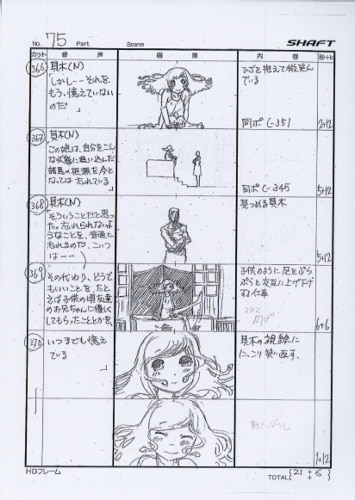 No. 75 Part Scene SHAFT
カット 音声 画面 内容 秒+k
366
貝木(N)
「しかし――それを
もう、憶えていない
のだ」
ひざを抱えて微笑ん
でいる
同ポC-351
2+12
367
貝木(N)
「この娘は、自分をこん
な状態に追い込んだ
諸悪の根源を今と
なっては忘れている
同ポC-345
5+12
368
貝木(N)
そういうことだと思っ
た。忘れられないよ
うなことを、普通に
忘れるのだ、こいつ
は――
見つめる貝木
5+12
369
その代わり、どうで
もいいことを、たと
えば子供の頃友達
のお兄ちゃんに優しく
してもらったことかを、
子供のように足をぶら
ぶらと交互に上げ下げ
する仁草
6+6
370
いつまでも憶え
ている
貝木の視線に
にっこり笑い返す、
1+12
HDフレーム
TOTAL (21 + 6)